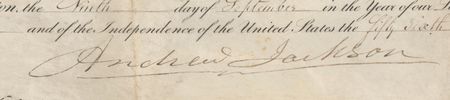 the Ninth day of September in the Year of our
and of the Independence of the United States the fifty Sixth
Andrew Jackson